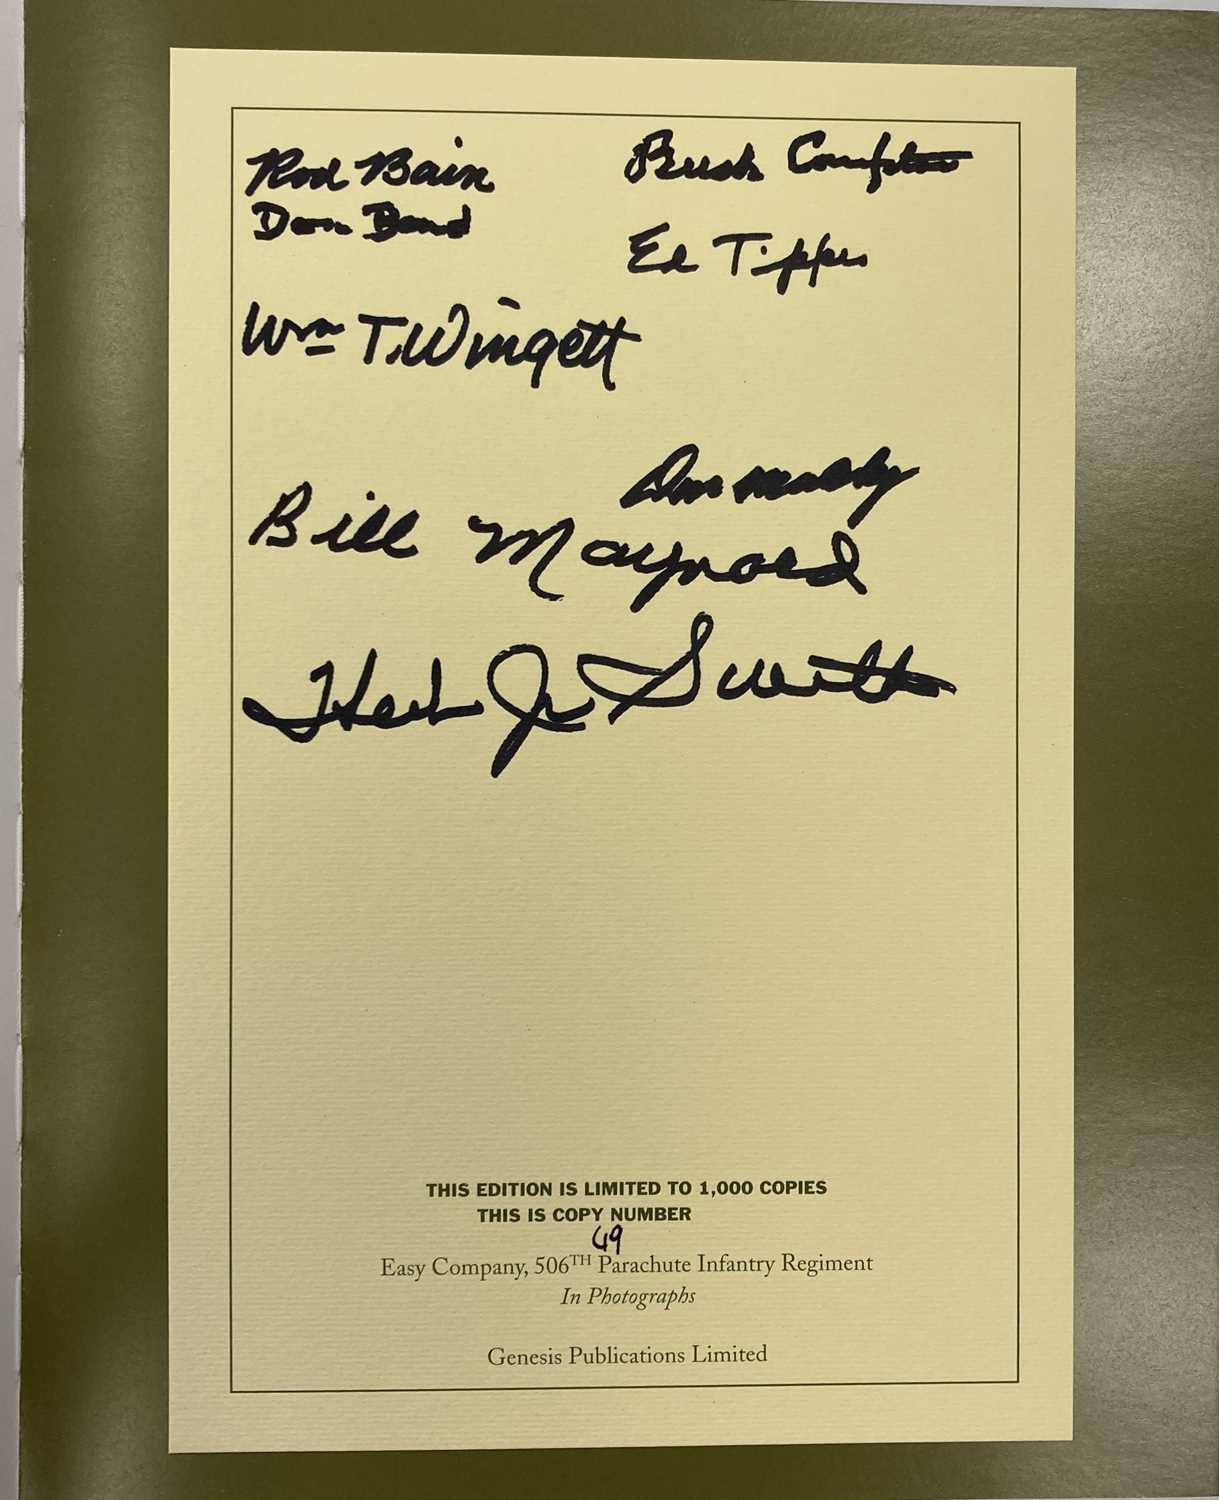 Rod Bain
Buck Compton
Don Bond
Ed Tipper
Wm T. Wingett
Don Malarkey
Bill Maynard
Herb Jr Suerth
THIS EDITION IS LIMITED TO 1,000 COPIES
THIS IS COPY NUMBER
49
Easy Company, 506TH Parachute Infantry Regiment
In Photographs
Genesis Publications Limited